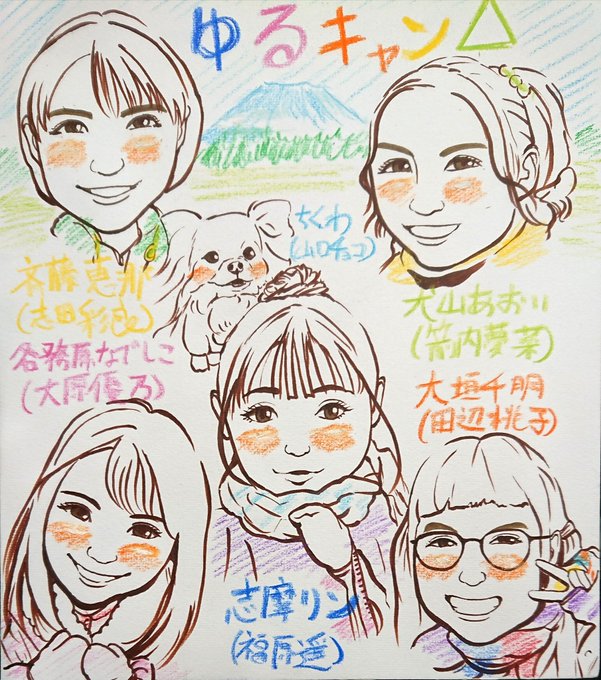 ゆるキャン△
ちくわ
(山口チョコ)
斉藤恵那
(志田彩良)
犬山あおい
(箭内夢菜)
各務原なでしこ
(大原優乃)
大垣千明
(田辺桃子)
志摩リン
(福原遥)